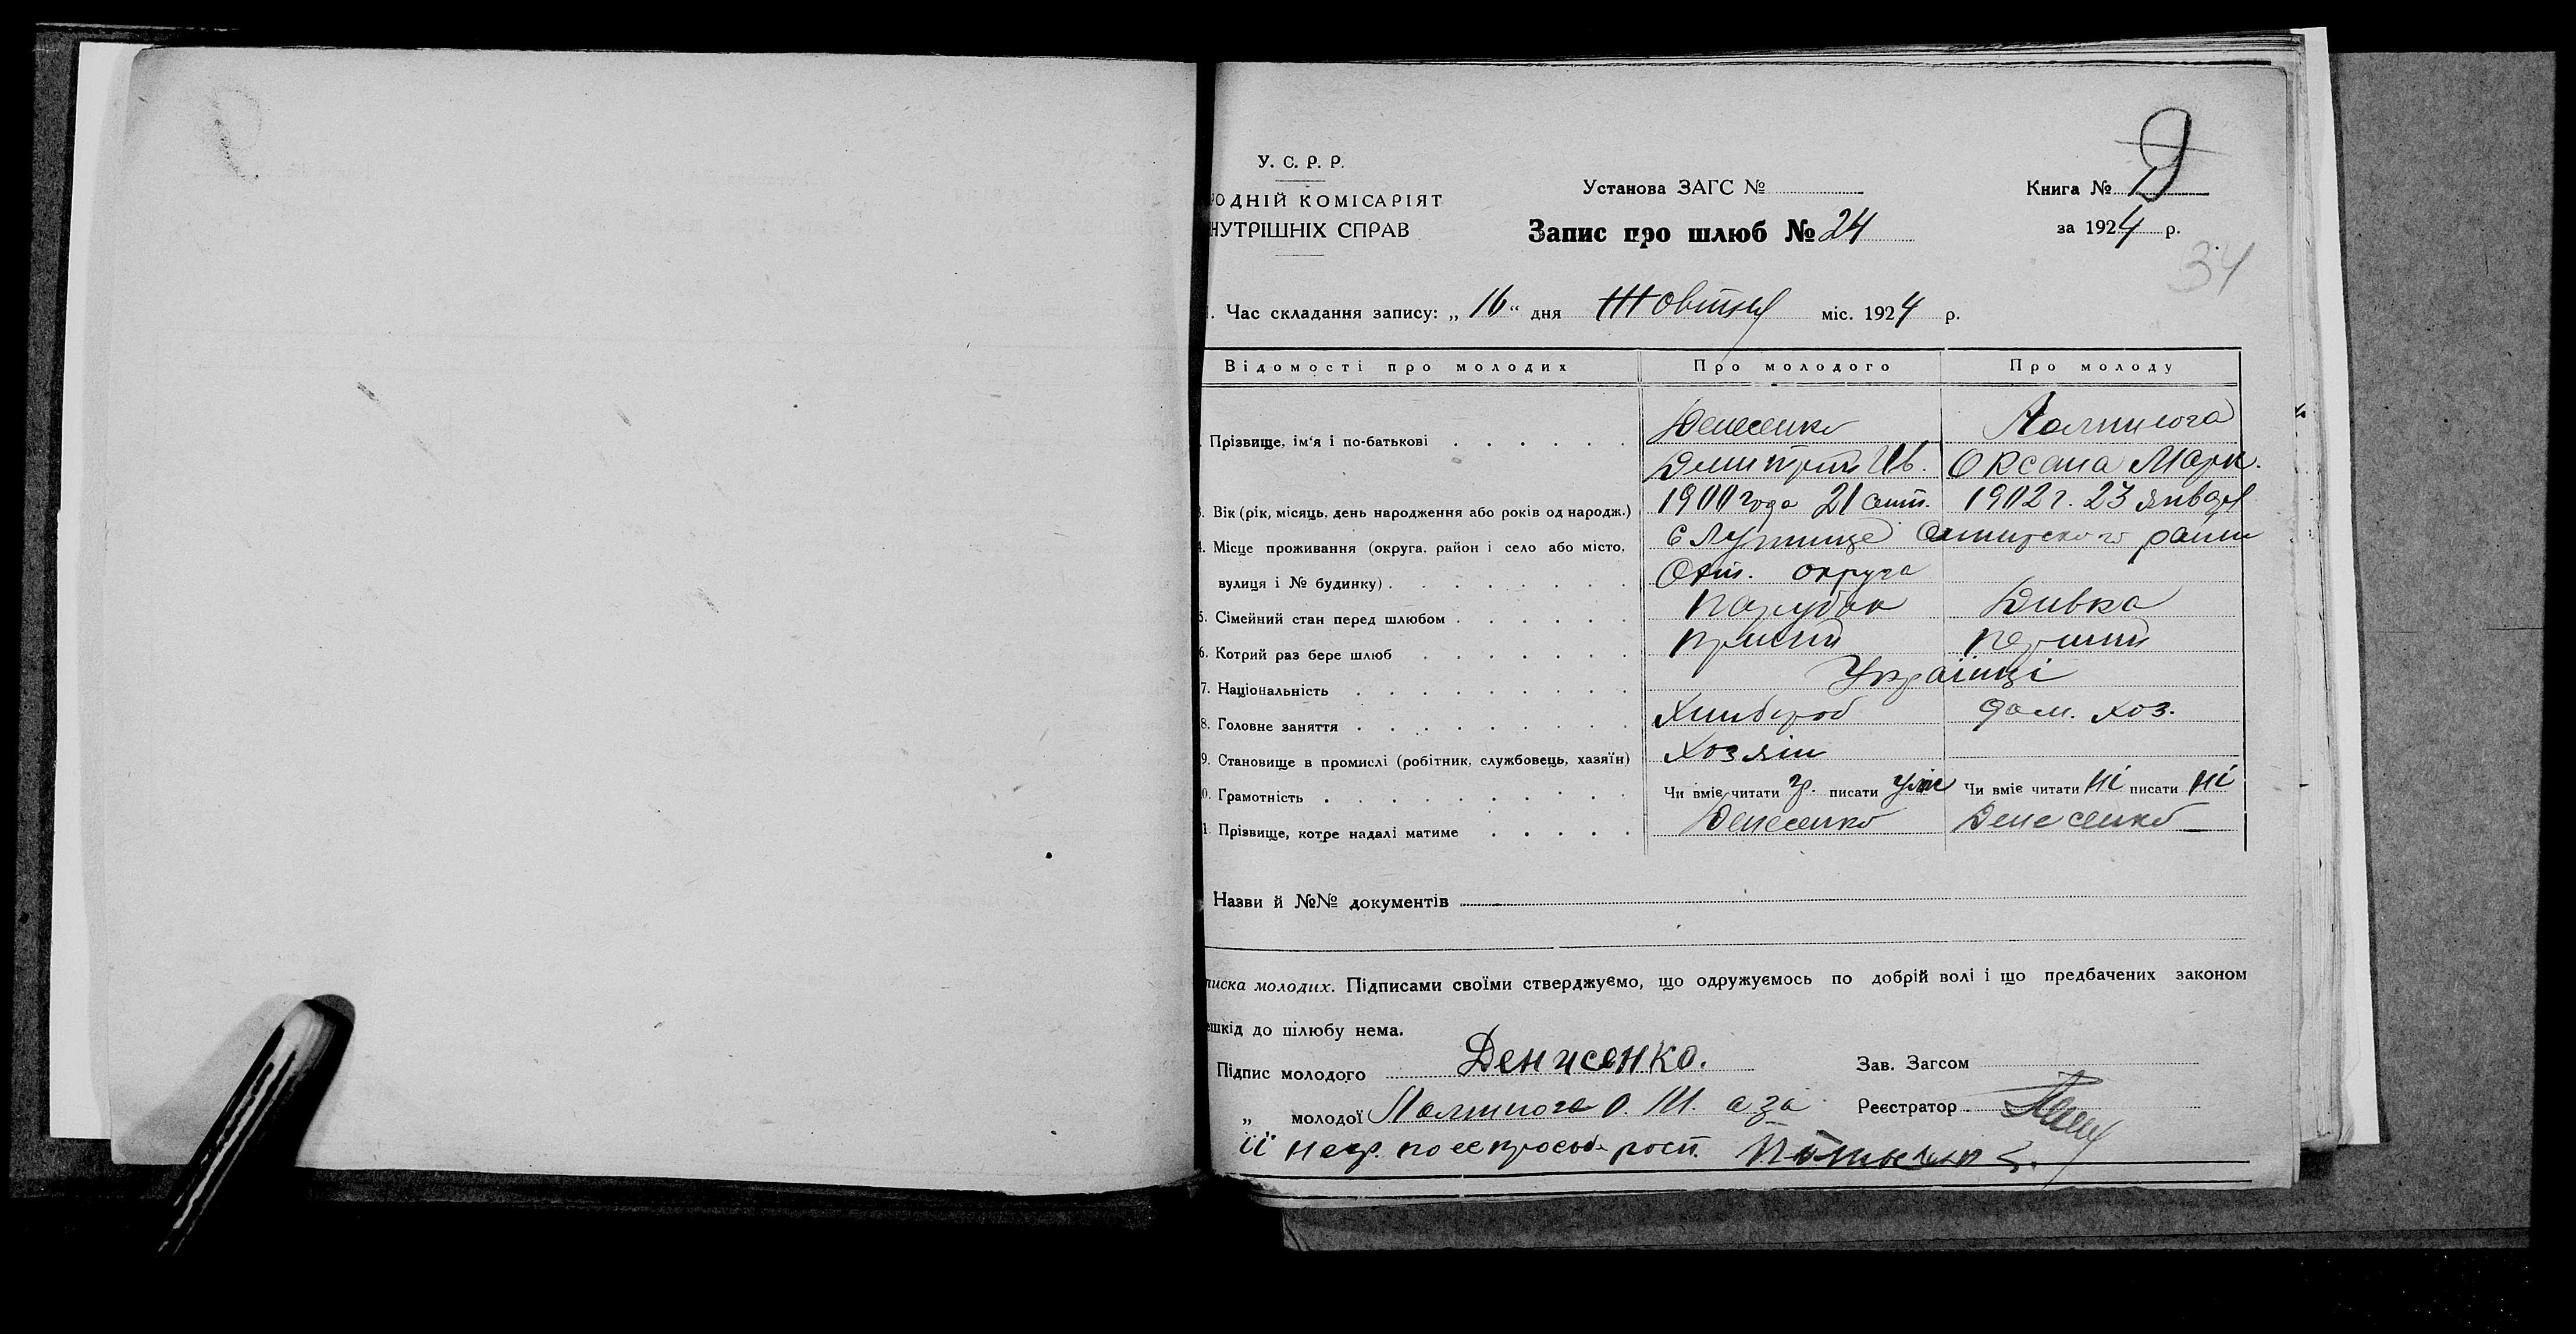 У. С. Р. Р.
ОДНІЙ КОМІСАРІЯТ
НУТРІШНІХ СПРАВ
Установа ЗАГС №
Запис про шлюб № 24
Книга №
за 1924 р.
34
1. Час складання запису: „ 16 “ дня Жовтня міс. 1924 р.
Відомості про молодих Про молодого Про молоду
Прізвище, ім'я і по-батькові Денесенко
Дмитрий Ив. Оксана Марк.
3. Вік (рік, місяць, день народження або років од народж.) 1900 года 21 сент. 1902 г. 23 января
4. Місце проживання (округа, район і село або місто, с Лутище Охтирского район
вулиця і № будинку) Охт. округа
5. Сімейний стан перед шлюбом Парубок Дивка
6. Котрий раз бере шлюб перший
7. Національність Українці
8. Головне заняття Хлибороб дом. хоз.
9. Становище в промислі (робітник, службовець, хазяїн) Хозяин
0. Грамотність Чи вміє читати гр. писати уміє Чи вміє читати ні писати ні
1. Прізвище, котре надалі матиме Денесенко Денесенко
Назви й №№ документів
писка молодих. Підписами своїми стверджуємо, що одружуємось по добрій волі і що предбачених законом
ешкід до шлюбу нема.
Підпис молодого Денисенко. Зав. Загсом
„ молодої О. М. а за Реєстратор
її негр. по ее просьб. росп.